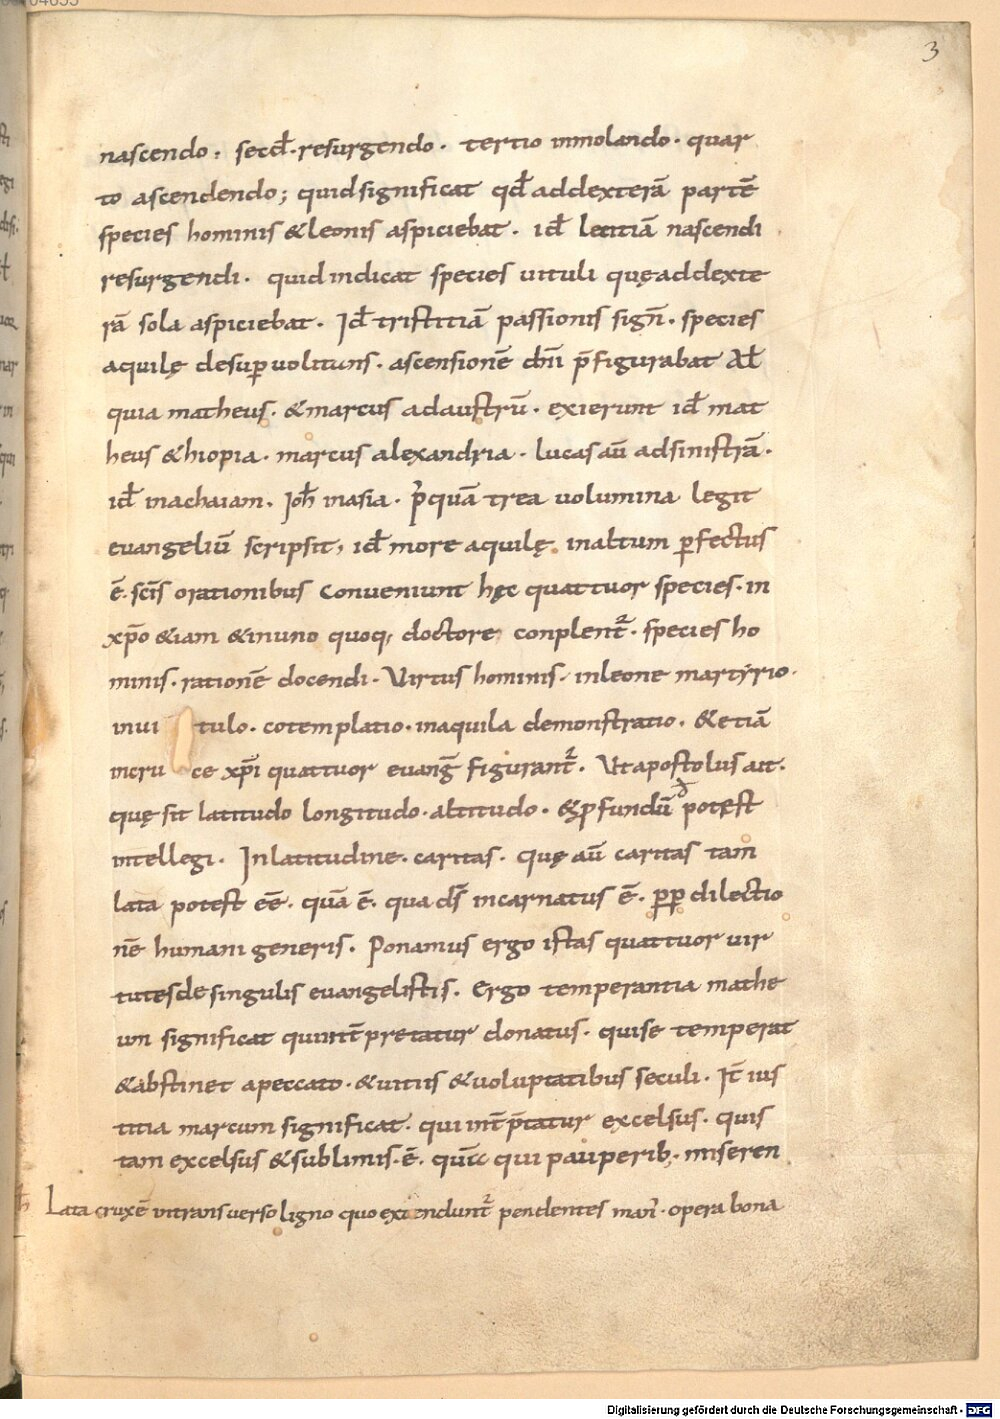 3
nascendo. secd̄. resurgendo. tertio inmolando. quar
to ascendendo; quid significat qd̄ addexterā partē
species hominis & leonis aspiciebat. id̄ letitiā nascendi
resurgendi. quid indicat species uituli quę addexte
rā sola aspiciebat. Id̄ tristitiā passionis sign̄. species
aquilę desup uolitans. ascensionē dn̄i p̄figurabat Al̄
quia matheus. & marcus adaustrū. exierunt id̄ mat
heus &hiopia. marcus alexandria. lucas aū adsinistrā.
id̄ inachaiam. Ioh̄ inasia. p̄quā trea uolumina legit
euangeliū scripsit, id̄ more aquilę. inaltum pfectus
ē. scīs orationibus conueniunt hęc quattuor species. in
xp̄o &iam &inuno quoq; doctore conplent̄. species ho
minis. rationē docendi. Virtus hominis. inleone martyrio.
inui tulo. cotemplatio. inaquila demonstratio. & etiā
incru ce xp̄i quattuor euanḡ figurant̄. Vt apostolus ait.
quę sit latitudo longitudo. altitudo. & pfundū potest
intellegi. Inlatitudine. caritas. quę aū caritas tam
lata potest eē. quā ē. qua ds̄ incarnatus ē. pp dilectio
nē humani generis. Ponamus ergo istas quattuor uir
tutes de singulis euangelistis. Ergo temperantia mathe
um significat qui int̄pretatur donatus. qui se temperat
& abstinet apeccato. & uitiis & uoluptatibus seculi. It̄ ius
titia marcum significat. qui int̄p̄tatur excelsus. quis
tam excelsus & sublimis. ē. qui pauperib; miseren
Lata crux ē intransuerso ligno quo extendunt̄ pendentes man. opera bona
Digitalisierung gefördert durch die Deutsche Forschungsgemeinschaft - DFG